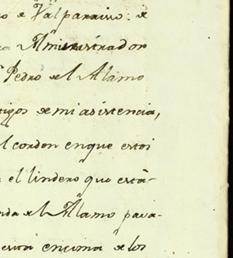 o e Valparaiso. e
Aministrador
Pedro el Alamo
tigos de mi asistencia,
l cordon en que estoi
a el lindero que está-
nda el Alamo para-
esta encima e los